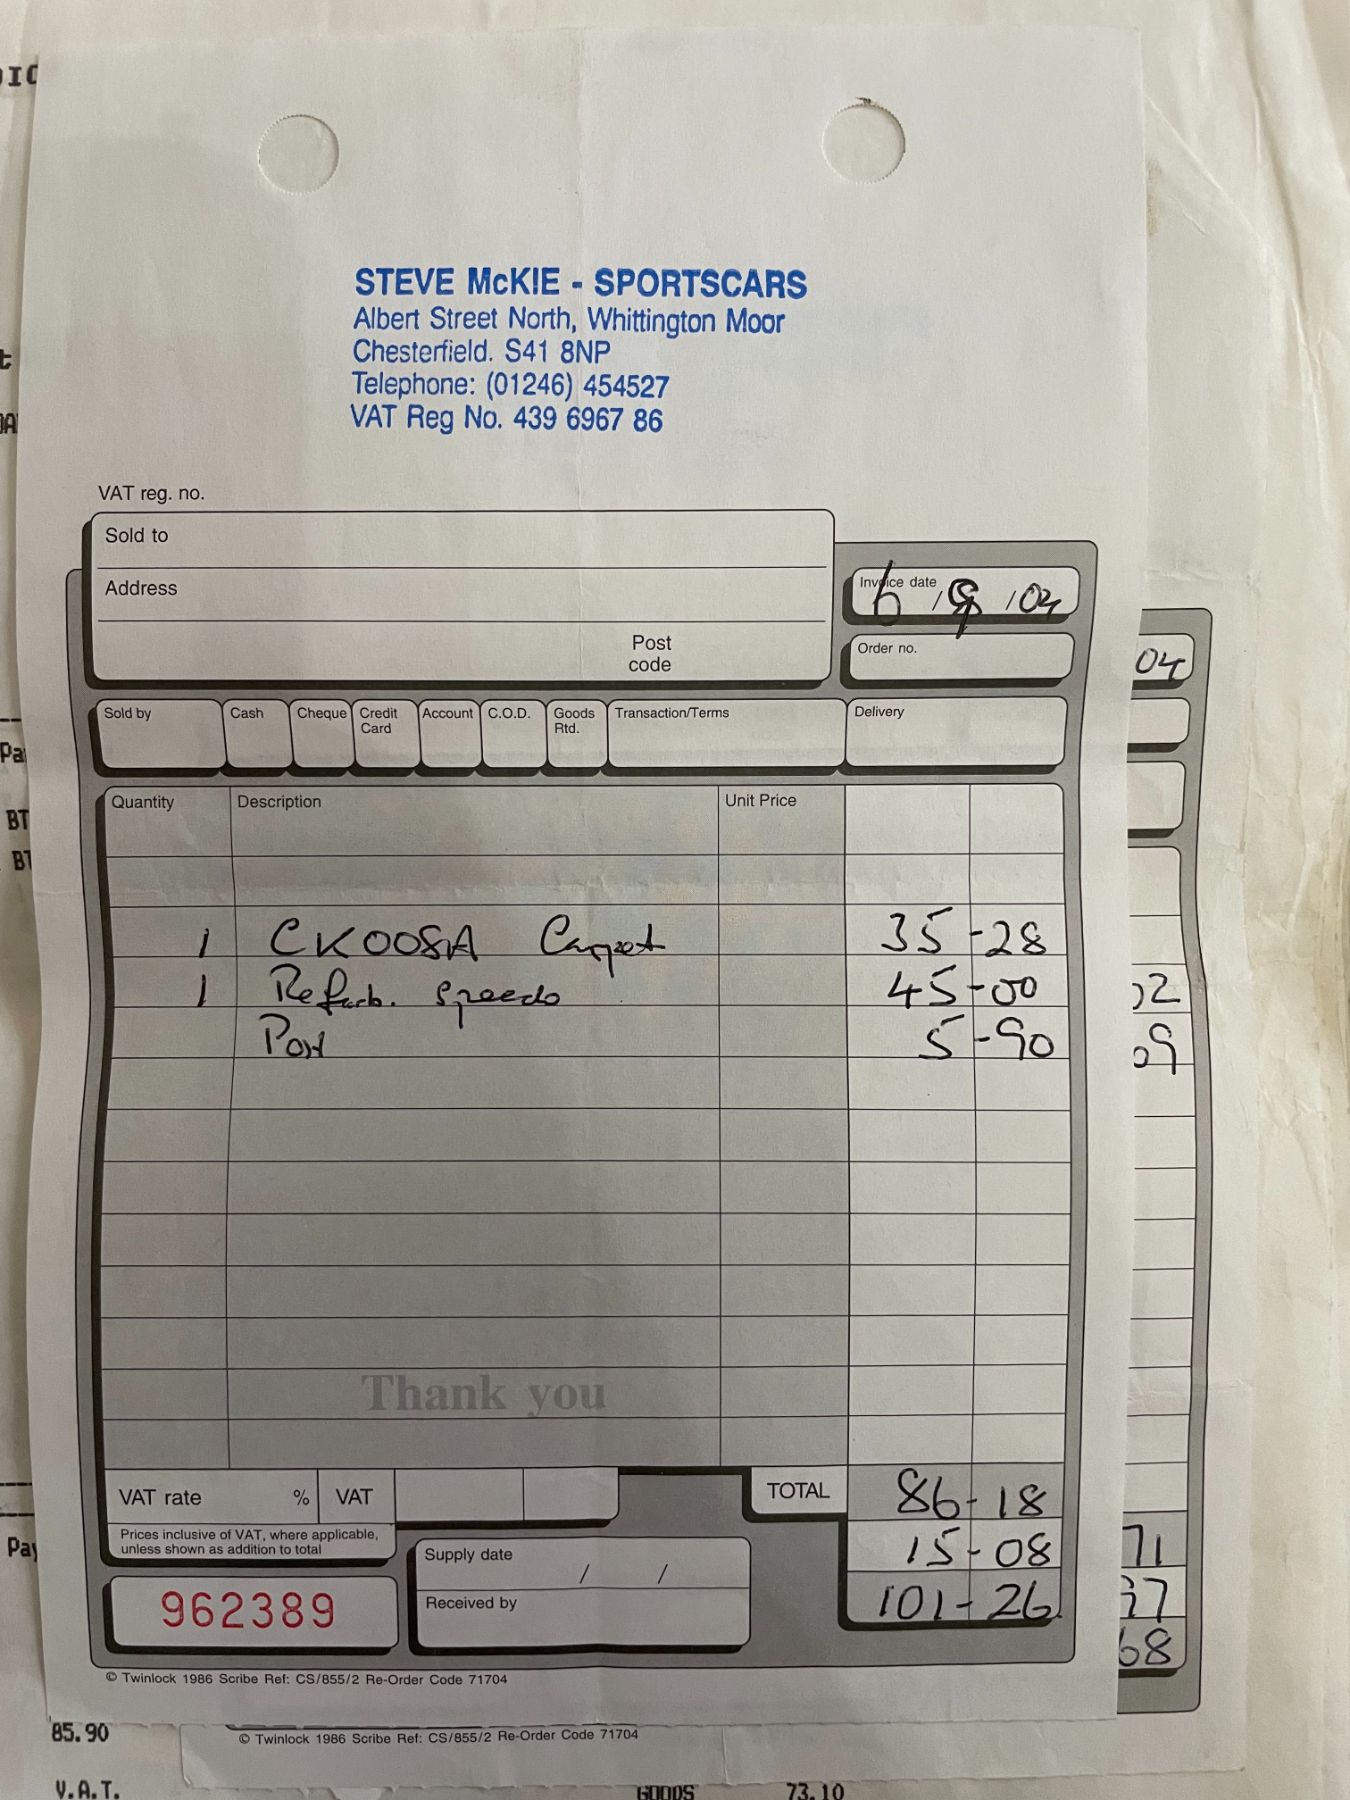 STEVE McKIE - SPORTSCARS
Albert Street North, Whittington Moor
Chesterfield. S41 8NP
Telephone: (01246) 454527
VAT Reg No. 439 6967 86
VAT reg. no.
Sold to
Address
Post code
Invoice date 6 / / 04
Order no.
04
Sold by Cash Cheque Credit Card Account C.O.D. Goods Rtd. Transaction/Terms Delivery
Quantity Description Unit Price
1 CK008A Carpet 35-28
1 Refurb. Speedo 45-00
Post 5-90
Thank you
VAT rate % VAT TOTAL 86-18
Prices inclusive of VAT, where applicable,
unless shown as addition to total
15-08
Supply date / /
101-26
962389
Received by
68
© Twinlock 1986 Scribe Ref: CS/855/2 Re-Order Code 71704
85.90
© Twinlock 1986 Scribe Ref: CS/855/2 Re-Order Code 71704
V.A.T. GOODS 73.10